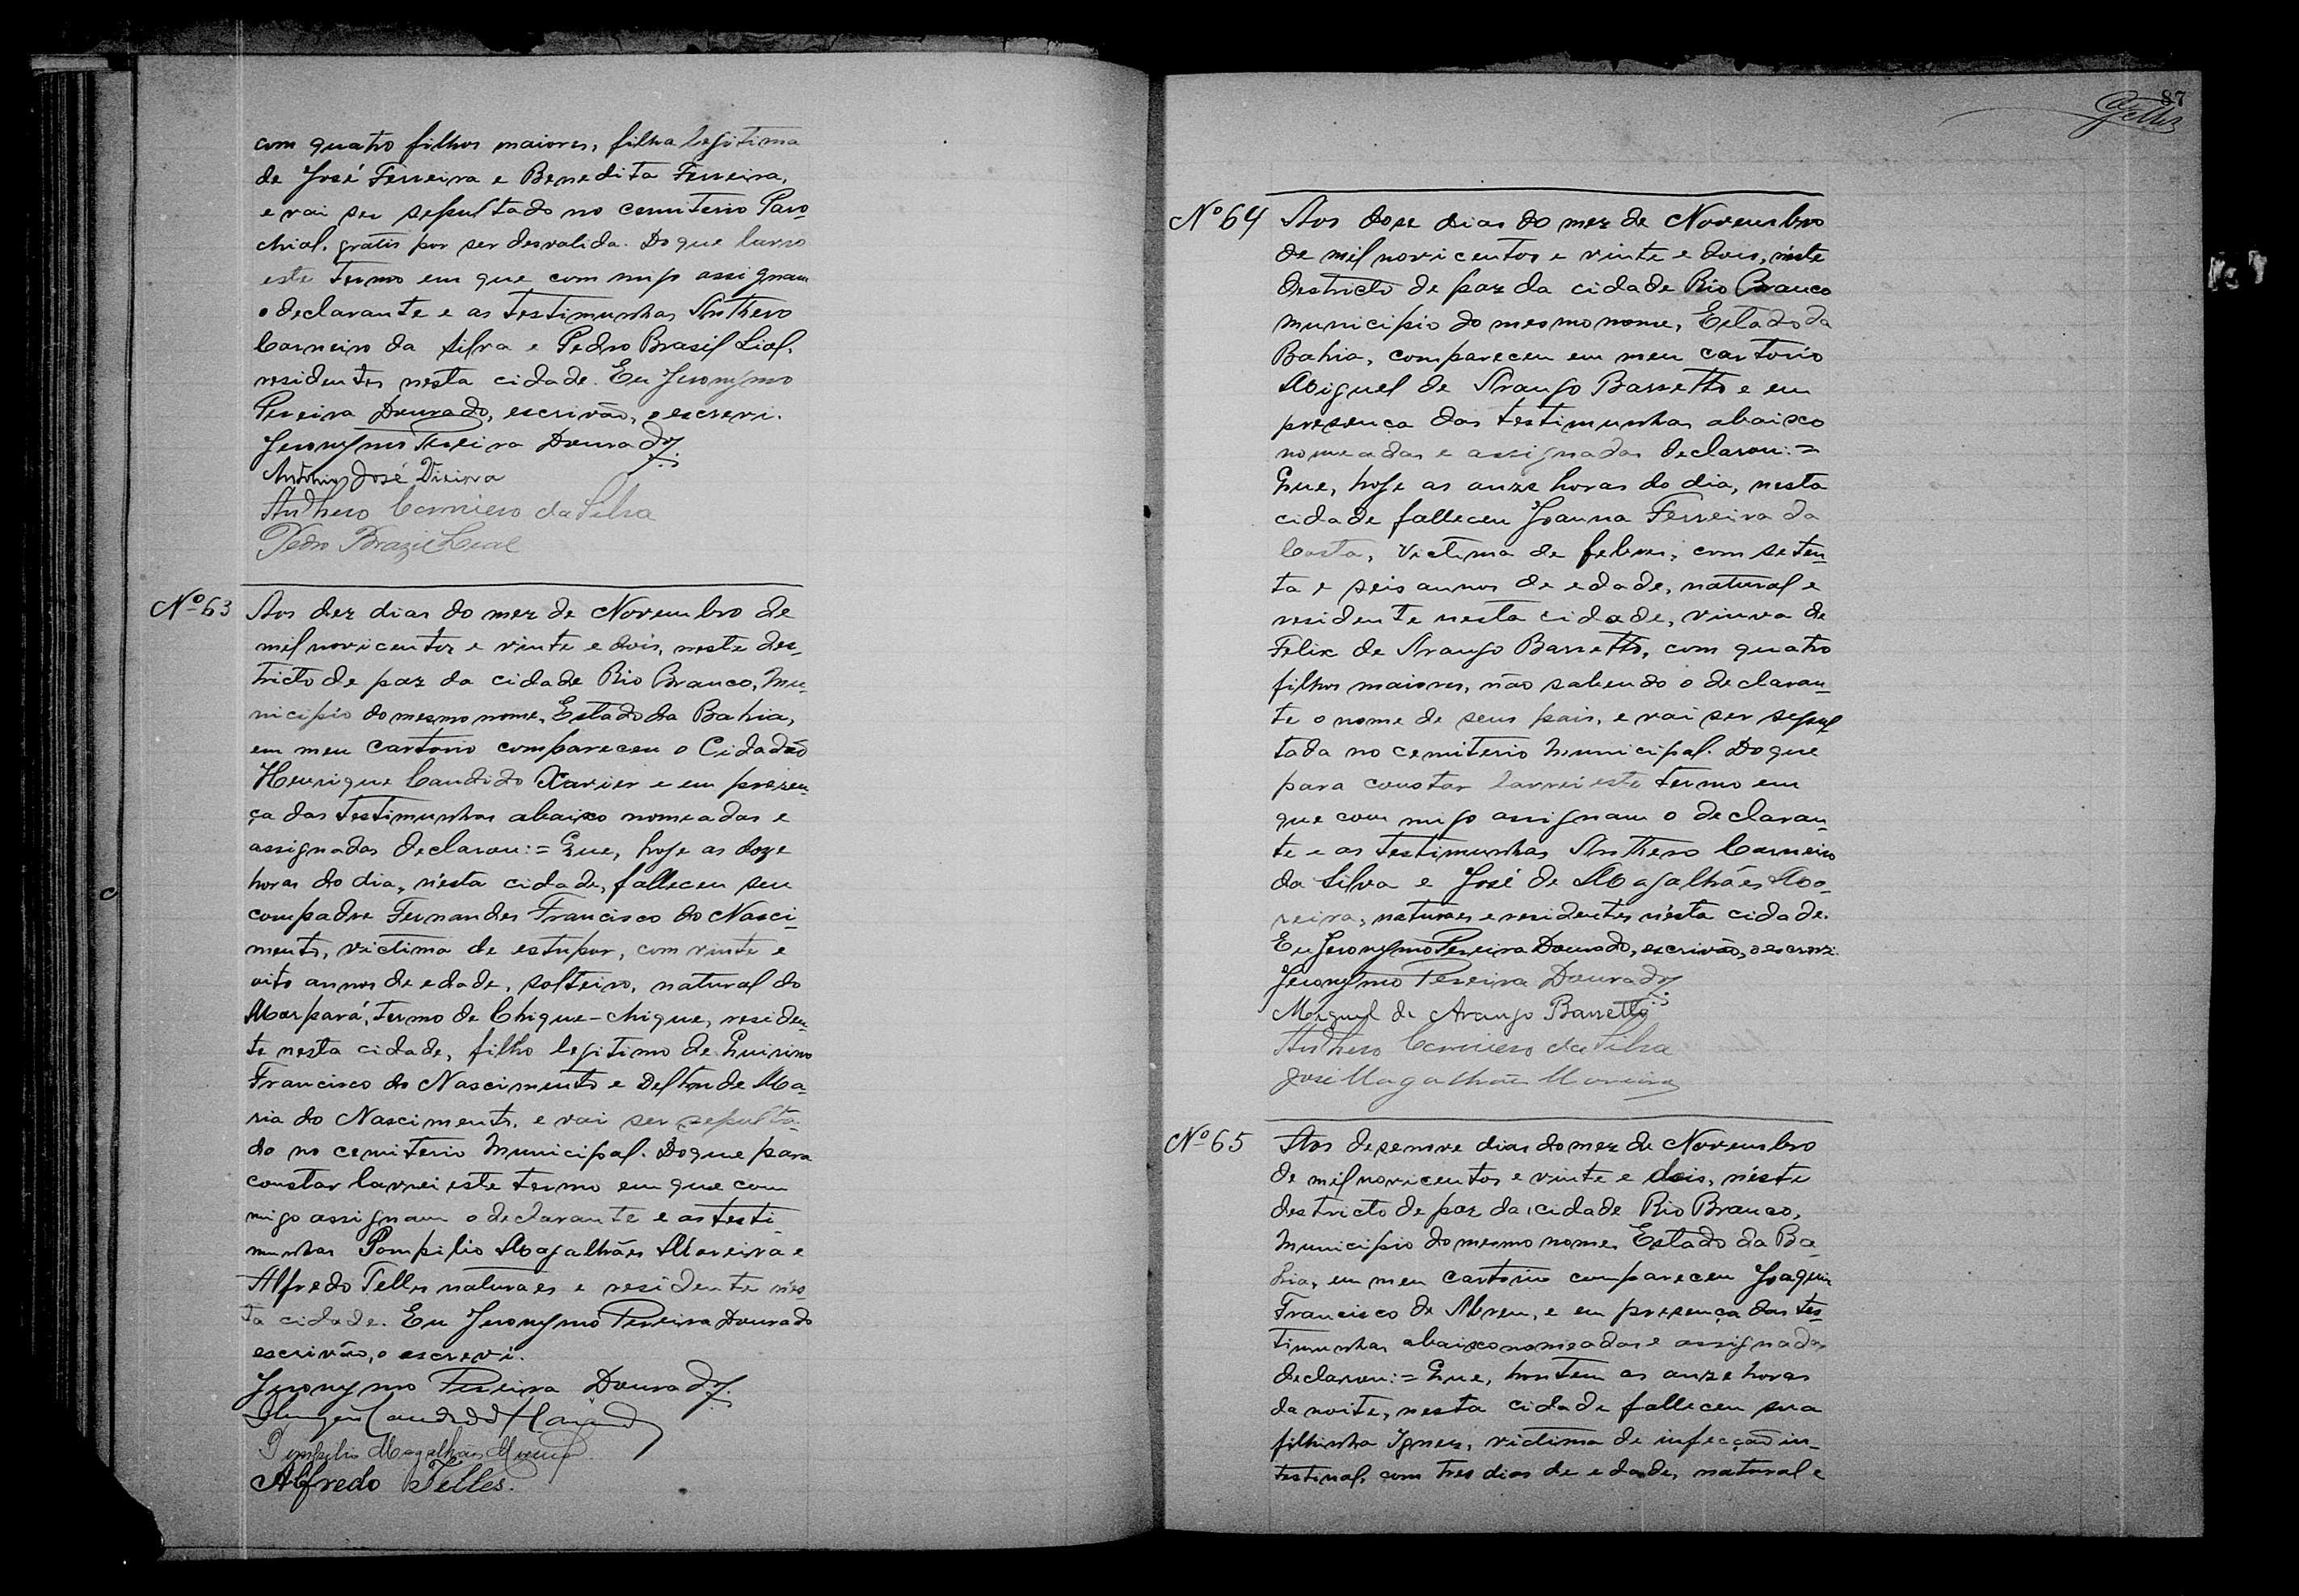 com quatro filhos maiores, filha legitima
de José Ferreira e Benedita Ferreira,
e vai ser sepultado no cemiterio Paro-
chial, gratis por ser desvalida. Do que lavro
este termo em que com migo assignam
o declarante e as testimunhas Anthero
Carneiro da Silva e Pedro Brasil Lial,
residentes nesta cidade. Eu Jeronymo
Pereira Dourado, escrivão, o escrevi.
Jeronymo Pereira Dourado
Antonio José Vieira
Anthero Carneiro da Silva
Pedro Brazil Leal
Nº 63 Aos dez dias do mez de Novembro de
mil novicentos e vinte e dois, neste des-
tricto de paz da cidade Rio Branco, Mu-
nicipio do mesmo nome, Estado da Bahia,
em meu cartorio compareceu o Cidadão
Henrique Candido Xavier e em prezen-
ça das testimunhas abaixo nomeadas e
assignadas declarou:= Que, hoje as doze
horas do dia, n'esta cidade, falleceu seu
compadre Fernandes Francisco do Nasci-
mento, victima de estupor, com vinte e
oito annos de edade, solteiro, natural do
Marpará, termo de Chique-chique, residen-
te nesta cidade, filho legitimo de Quirino
Francisco do Nascimento e Deltrude Ma-
ria do Nascimento, e vai ser sepulta-
do no cemiterio Municipal. Do que para
constar lavrei este termo em que com
migo assignam o declarante e as testi-
munhas Pompilio Magalhães Moreira e
Alfredo Telles naturaes e residente n'es-
ta cidade. Eu Jeronymo Pereira Dourado
escrivão, o escrevi.
Jeronymo Pereira Dourado
Pompilio Magalhães
Alfredo Telles.
87
Telles
Nº 64 Aos dose dias do mez de Novembro
de mil novicentos e vinte e dois, n'este
destricto de paz da cidade Rio Branco
municipio do mesmo nome, Estado da
Bahia, compareceu em meu cartorio
Miguel de Araujo Barretto e em
presença das testimunhas abaixo
nomeadas e assignadas declarou:=
Que, hoje as onze horas do dia, nesta
cidade falleceu Joanna Ferreira da
Costa, victima de febres, com seten-
ta e seis annos de edade, natural e
residente nesta cidade, viuva de
Felix de Araujo Barretto, com quatro
filhos maiores, não sabendo o declaran-
te o nome de seus pais, e vai ser sepul-
tada no cemiterio Municipal. Do que
para constar lavrei este termo em
que com migo assignam o declaran-
te e as testimunhas Anthero Carneiro
da Silva e José de Magalhães Mo-
reira, naturaes e residentes n'esta cidade.
Eu Jeronymo Pereira Dourado, escrivão, o escrevi.
Jeronymo Pereira Dourado
Miguel de Araujo Barretto
Anthero Carneiro da Silva
José Magalhães Moreira
Nº 65 Aos desenove dias do mez de Novembro
de mil novicentos e vinte e dois, n'este
destricto de paz da cidade Rio Branco,
Municipio do mesmo nome, Estado da Ba-
hia, em meu cartorio compareceu Joaquim
Francisco de Abreu, e em presença das tes-
timunhas abaixo nomeadas e assignadas
declarou:= Que, hontem as onze horas
da noite, nesta cidade falleceu sua
filhinha Ignez, victima de infecção in-
testinal, com tres dias de edade, natural e